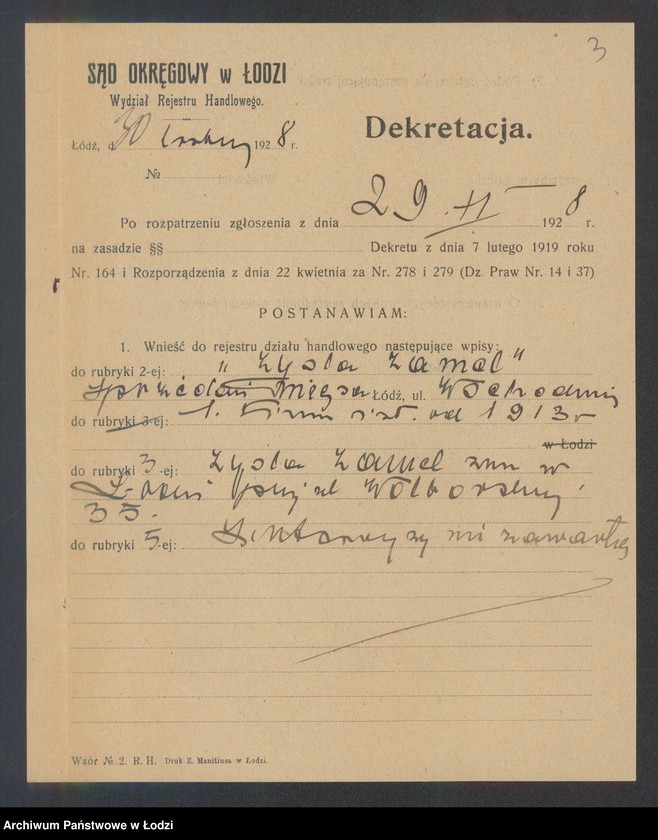 3
SĄD OKRĘGOWY w ŁODZI
Wydział Rejestru Handlowego.
Dekretacja.
Łódź, d 30 1928 r.
№
Po rozpatrzeniu zgłoszenia z dnia 29. II 1928 r.
na zasadzie §§ Dekretu z dnia 7 lutego 1919 roku
Nr. 164 i Rozporządzenia z dnia 22 kwietnia za Nr. 278 i 279 (Dz. Praw Nr. 14 i 37)
POSTANAWIAM:
1. Wnieść do rejestru działu handlowego następujące wpisy:
do rubryki 2-ej: "Zysla Zamel"
Sprzedaż Mięsa Łódź, ul. Wschodniej
do rubryki 3-ej: 1. Firma ist. od 1913 r
w Łodzi
do rubryki 3-ej: Zysla Zamel zam w
Łodzi przy ul Wolborskiej
35.
do rubryki 5-ej: Intercyzy nie zawarła
Wzór № 2. R. H. Druk Z. Manitiusa w Łodzi.
Archiwum Państwowe w Łodzi